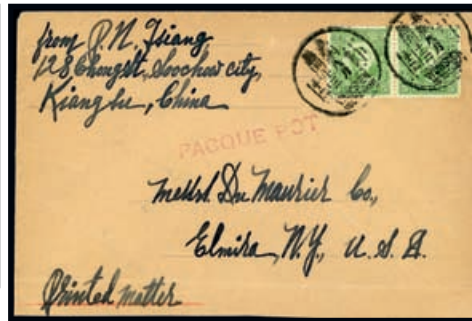 from P. N. Tsiang,
128 Chongst, Soochow city,
Kiangsu, China
PACQUE POT
Messrs. Du Maurier Co.,
Elmira, N.Y., U.S.A.
Printed matter